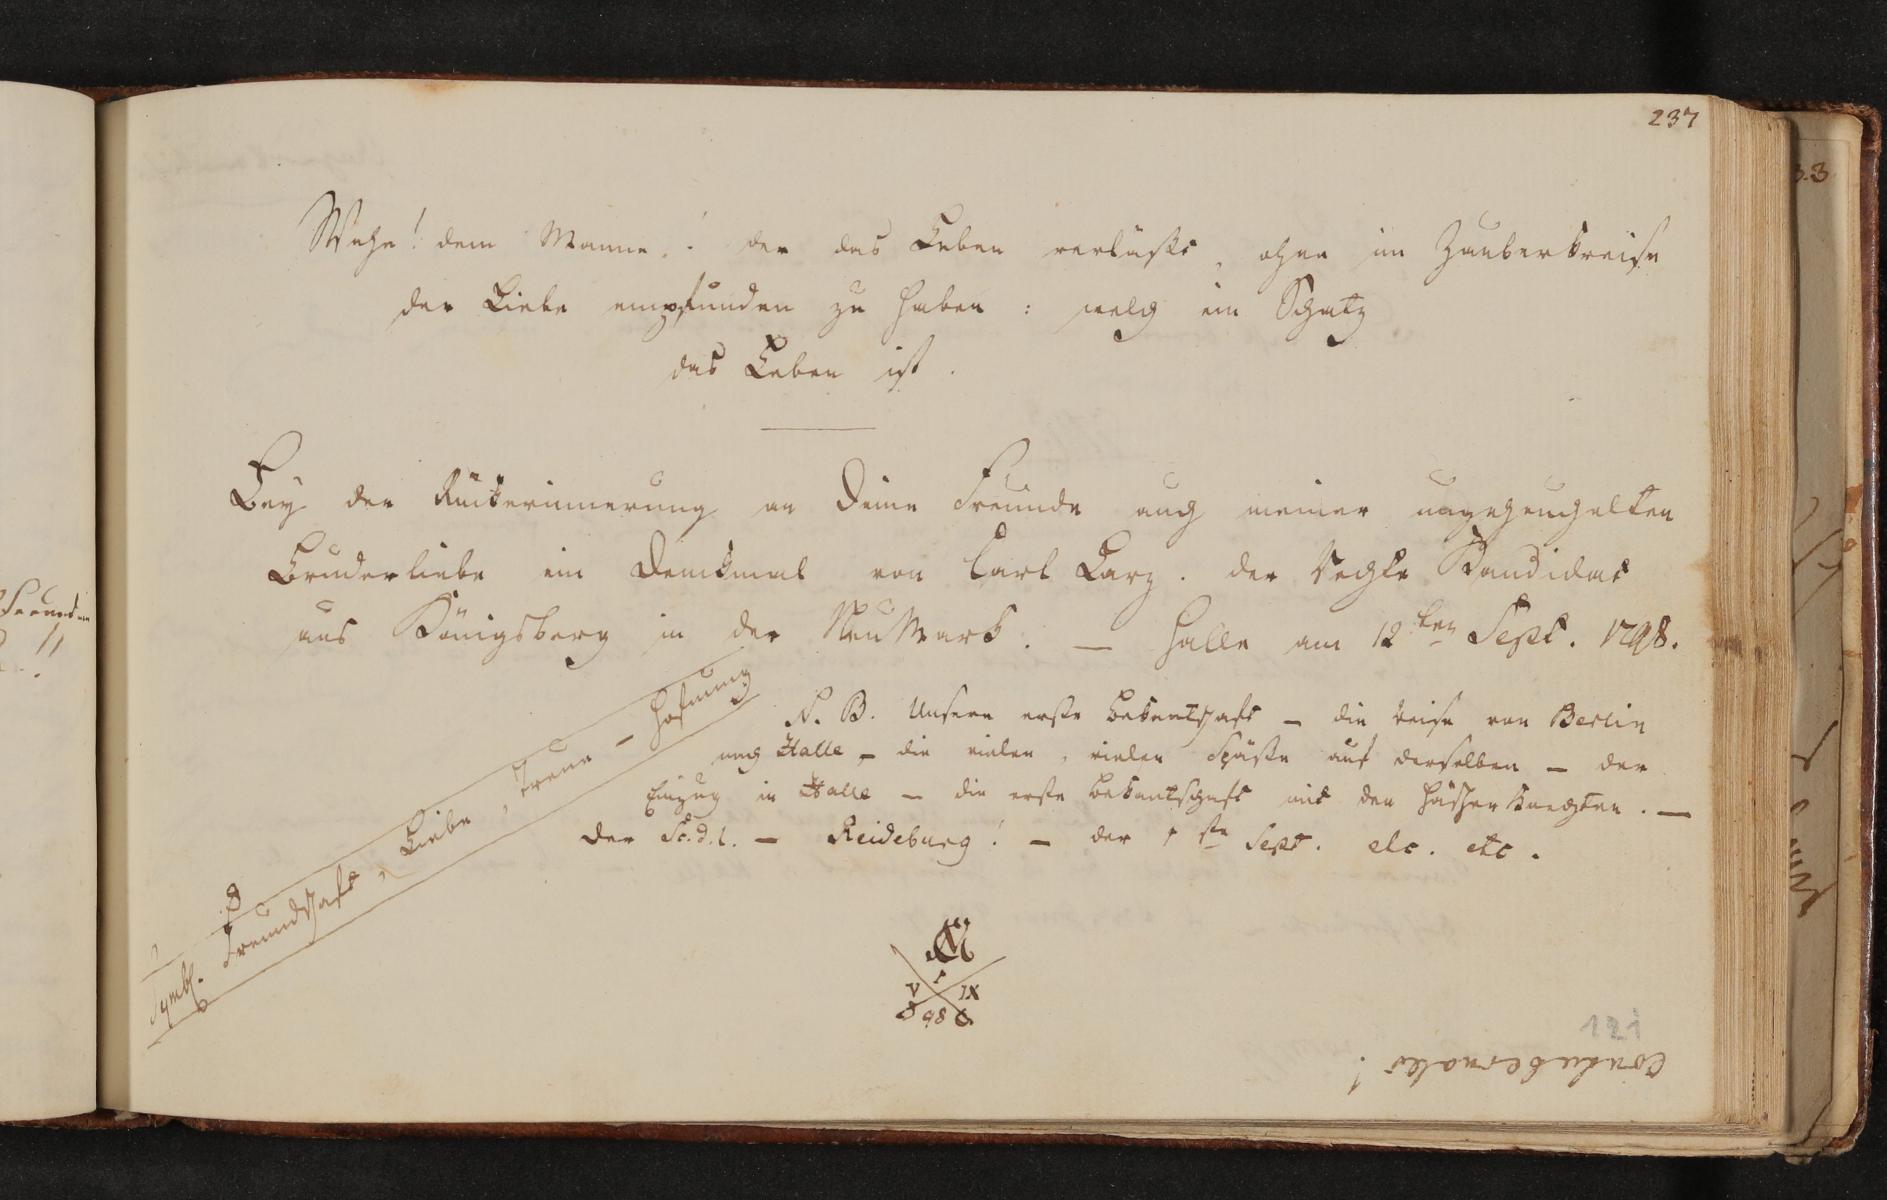 237
Wehe! dem Manne! der das Leben verläßt, ohne im Zauberkreise
der Liebe empfunden zu haben: welch ein Schatz
das Leben ist.
Bey der Rükerinnerung an Deine Freunde auch meiner ungeheuchelten
Bruderliebe ein Denkmal von Carl Larz. der Rechte Kandidat
aus Königsberg in der NeuMark. — Halle am 12ten Sept. 1798.
N. B. Unsere erste Bekantschaft – die Reise von Berlin
nach Halle – die vielen, vielen Späße auf derselben – der
Einzug in Halle – die erste Bekantschaft mit den Häscher Knechten. —
Der – Reideburg! – der 1ste Sept. etc. etc.
Symbl. Freundschaft, Liebe, Treue – Hofnung
V IX
98
121
Contubernales!